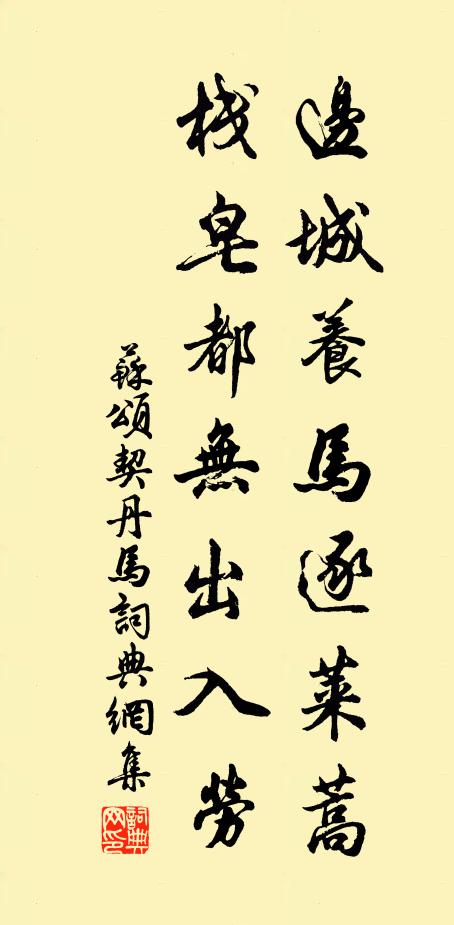 邊城養馬逐萊蒿
棧皂都無出入勞
蘇頌契丹馬詞典網集
詞典網印